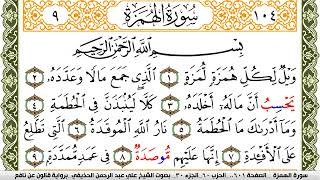 ١٠٤ سُورَةُ الْهُمَزَةِ ٩
بِسْمِ اللَّهِ الرَّحْمَٰنِ الرَّحِيمِ
وَيْلٌ لِّكُلِّ هُمَزَةٍ لُّمَزَةٍ ١ الَّذِي جَمَعَ مَالًا وَعَدَّدَهُ ٢
يَحْسِبُ أَنَّ مَالَهُ أَخْلَدَهُ ٣ كَلَّا لَيُنۢبَذَنَّ فِي الْحُطَمَةِ ٤
وَمَا أَدْرَىٰكَ مَا الْحُطَمَةُ ٥ نَارُ اللَّهِ الْمُوقَدَةُ ٦ الَّتِي تَطَّلِعُ
عَلَى الْأَفْـِٔدَةِ ٧ إِنَّهَا عَلَيْهِم مُّوصَدَةٌ ٨ فِي عَمَدٍ مُّمَدَّدَةٍ ٩
سورة الهمزة - الصفحة ٦٠١.. الحزب ٦٠ الجزء ٣٠. بصوت الشيخ علي عبد الرحمن الحذيفي برواية قالون عن نافع